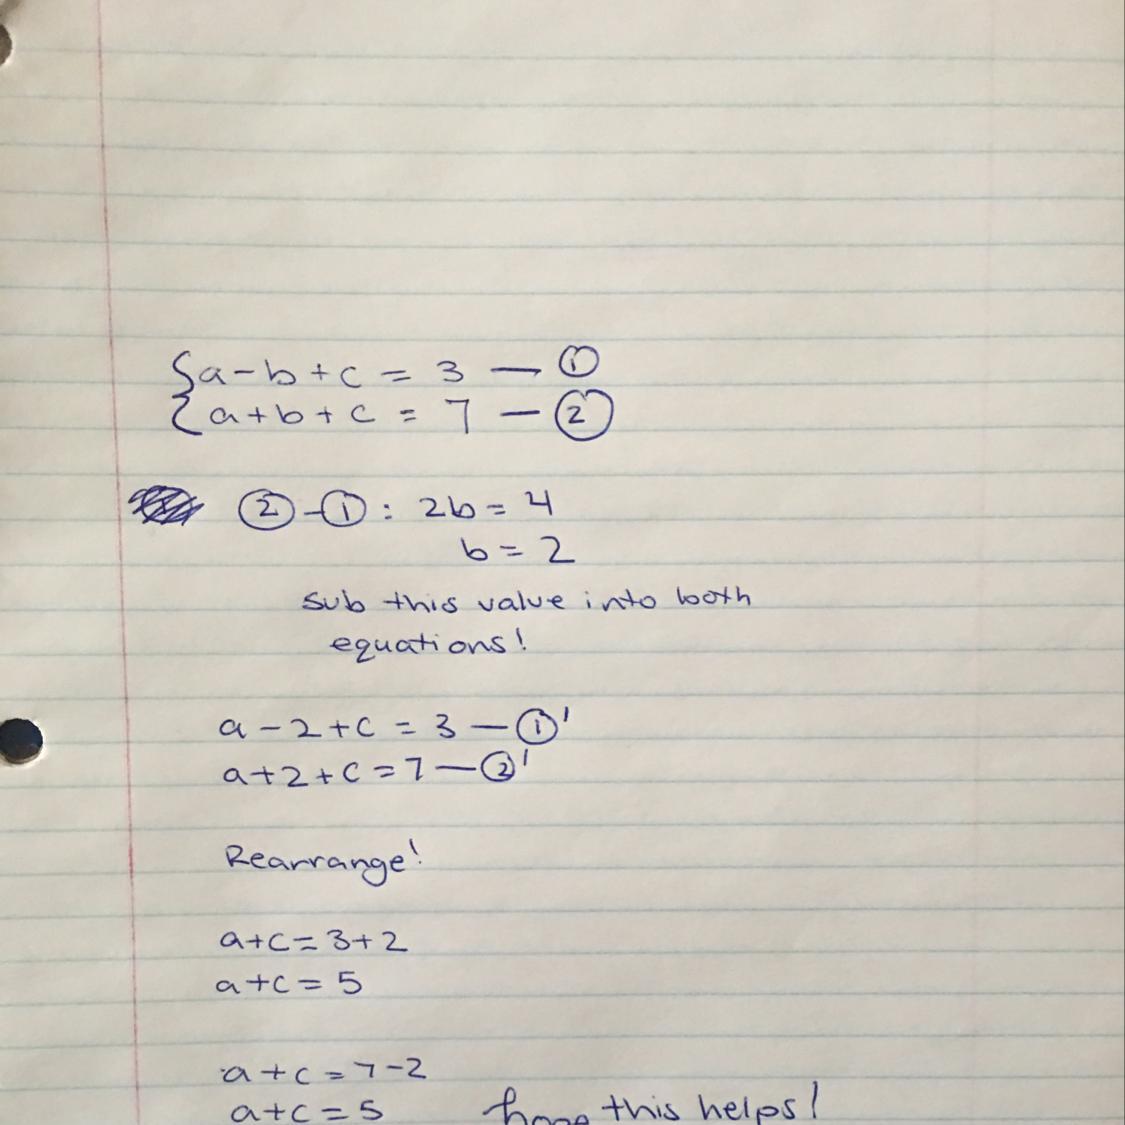 {a - b + c = 3 — ①
a + b + c = 7 — ②
② - ① : 2b = 4
b = 2
sub this value into both
equations!
a - 2 + c = 3 — ①'
a + 2 + c = 7 — ②'
Rearrange!
a + c = 3 + 2
a + c = 5
a + c = 7 - 2
a + c = 5 hope this helps!